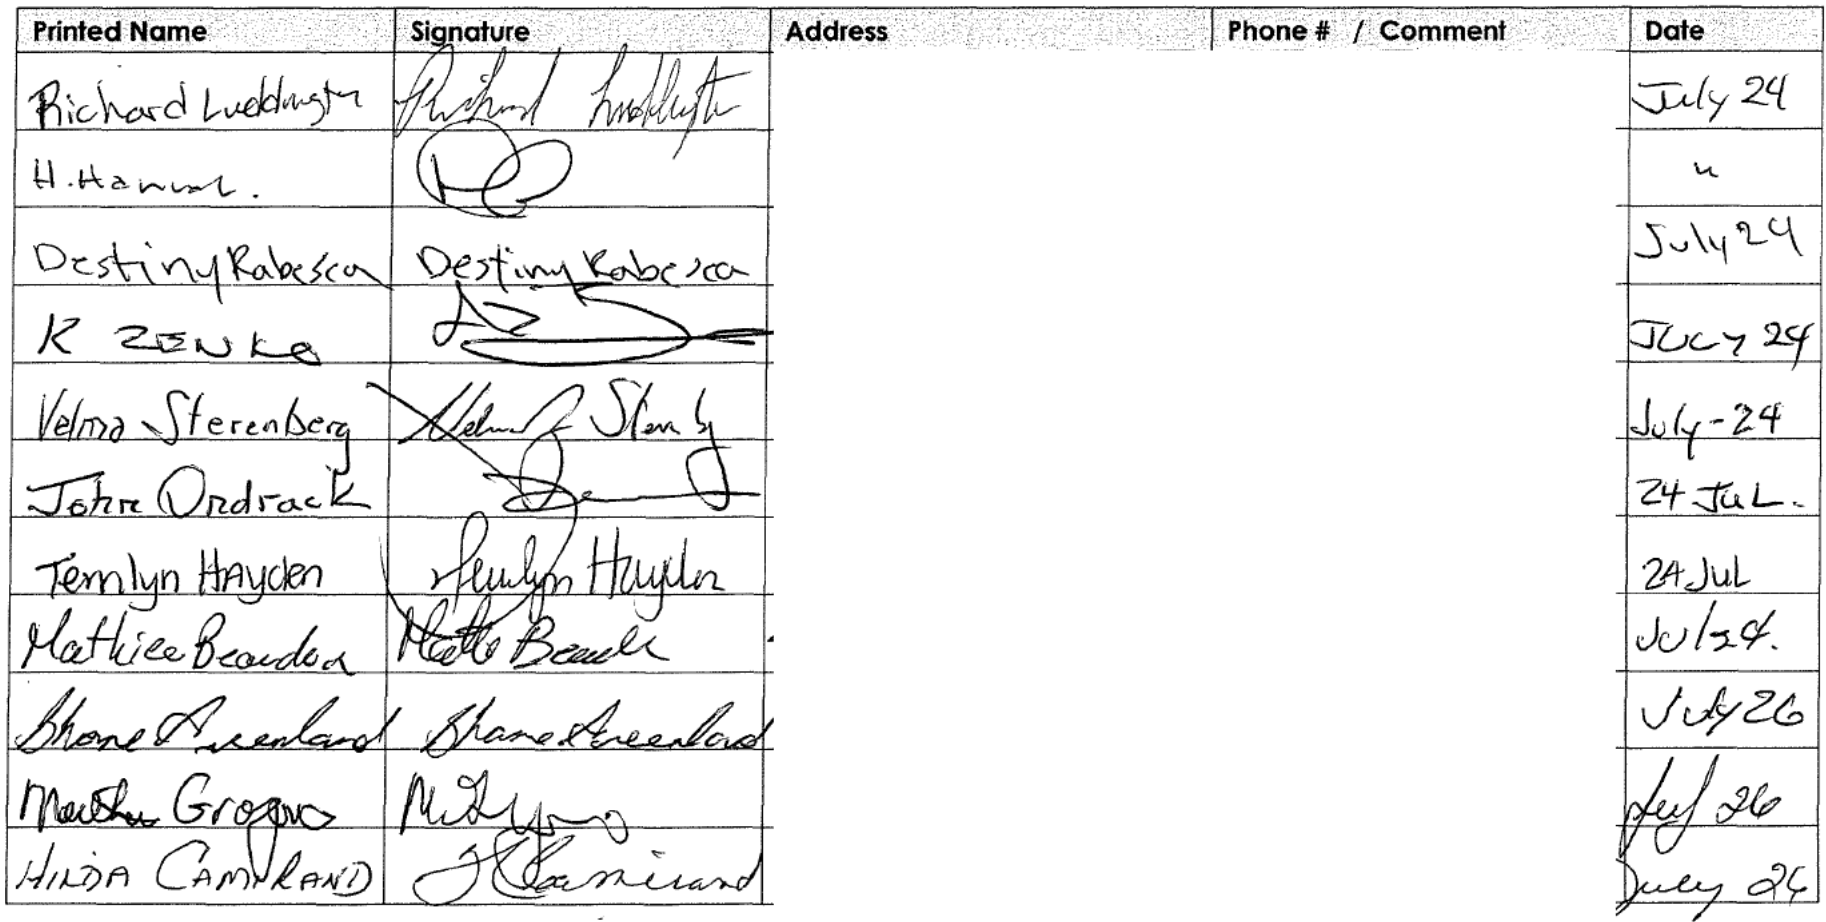 Printed Name Signature Address Phone # / Comment Date
Richard Luddington Richard Luddington July 24
H. "
Destiny Rabesca Destiny Rabesca July 24
K ZENKO JULY 24
Velma Sterenberg Velma Sterenberg July-24
John Ondrack 24 JUL.
Temlyn Hayden Temlyn Hayden 24 Jul
Mathieu Beaudoin Jul 24.
Shane Greenland Shane Greenland July 26
Grogono July 26
HILDA CAMIRAND H Camirand July 26